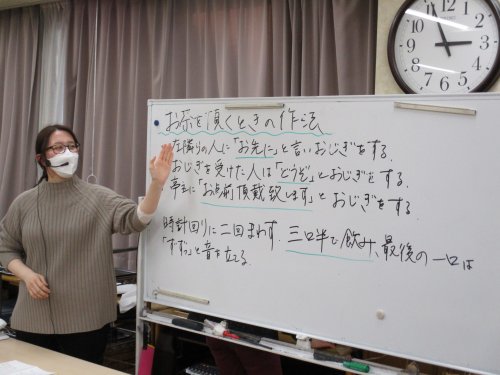 お茶を頂くときの作法
左隣りの人に「お先に」と言いおじぎをする.
おじぎを受けた人は「どうぞ」とおじぎをする.
亭主に「お点前頂戴致します」とおじぎをする.
時計回りに二回まわす. 三口半で飲み、最後の一口は
「ずずっ」と音を立てる
SEIKO
12
1
2
3
4
5
6
7
8
9
10
11